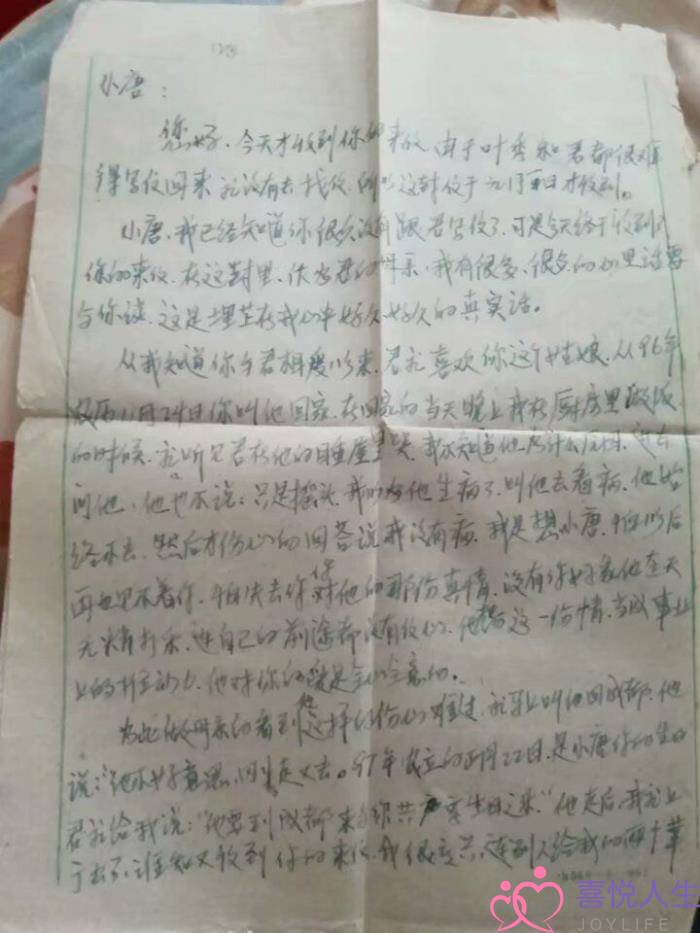 小唐：
您好。今天才收到你的来信，由于叶秀和君都很难
得写信回来，就没有去找信，所以这封信于元月 日才收到。
小唐，我已经知道你很久没有跟君写信了，可是今天终于收到
你的来信，在这封里，供出君的 ，我有很多、很多的心里话要
与你谈，这是埋在我心中好久好久的真实话。
从我知道你与君相处以来，君就喜欢你这个姑娘，从96年
农历11月24日你叫他回家，在回家的当天晚上我在厨房里做饭
的时候，就听见君在他的睡屋里哭，我不知道他为什么原因，进去
问他，他也不说：只是摇头，我以为他生病了，叫他去看病，他始
终不去，然后才伤心的回答说我没有病，我是想小唐，怕以后
再也见不着你，怕失去你对他的那份真情，没有你好象他在天
无精打采，连自己的前途都没有信心，他把这一份情，当成事业
上的推动力，他对你的 是全心全意的。
为此做母亲的看到他这样的伤心难过，就马上叫他回成都，他
说："他不好意思，回来走又去。97年农历的正月22日，是小唐你的生日
君就给我说："他要到成都来与你共度生日之乐"他走后，我就上
广去了，谁知又收到你的来信，我很 ，连别人给我的两个苹
喜悦人生
JOYLIFE